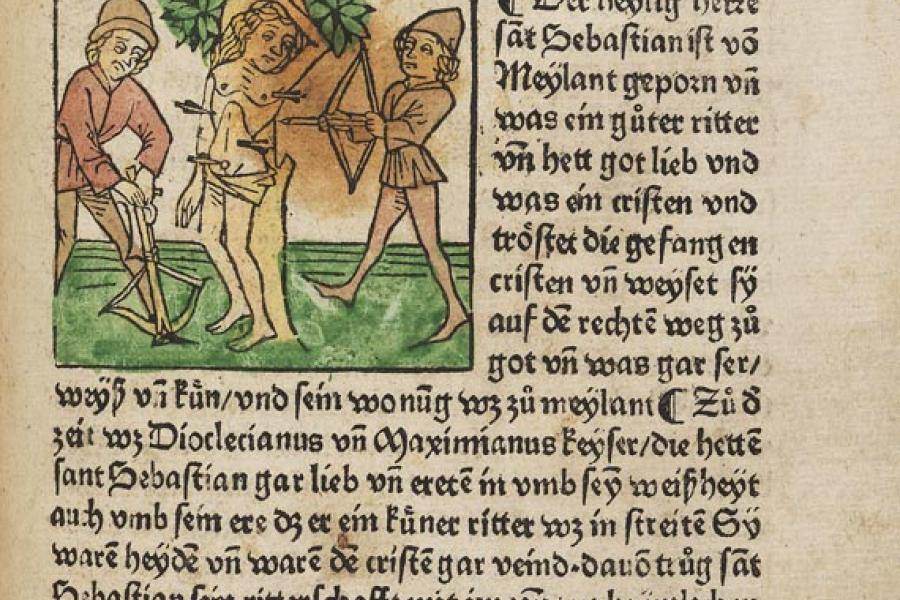 ¶ Der heylig herre
sāt Sebastian ist vō
Meylant geporn vn̄
was ein gůter ritter
vn̄ hett got lieb vnd
was ein cristen vnd
tröstet die gefangen
cristen vn̄ weyset sy̋
auf dē rechtē weg zů
got vn̄ was gar ser/
weyß vn̄ kůn/vnd sein wonūg wz zů meylant ¶ Zů d̕
zeit wz Dioclecianus vn̄ Maximianus keyser/die hettē
sant Sebastian gar lieb vn̄ eretē in vmb sey̋ weißheyt
auch vmb sein ere dz er ein kůner ritter wz in streitē Sy̋
warē heydē vn̄ warē dē cristē gar veind.dauō trůg sāt
Sebastian sein ritterschafft mit